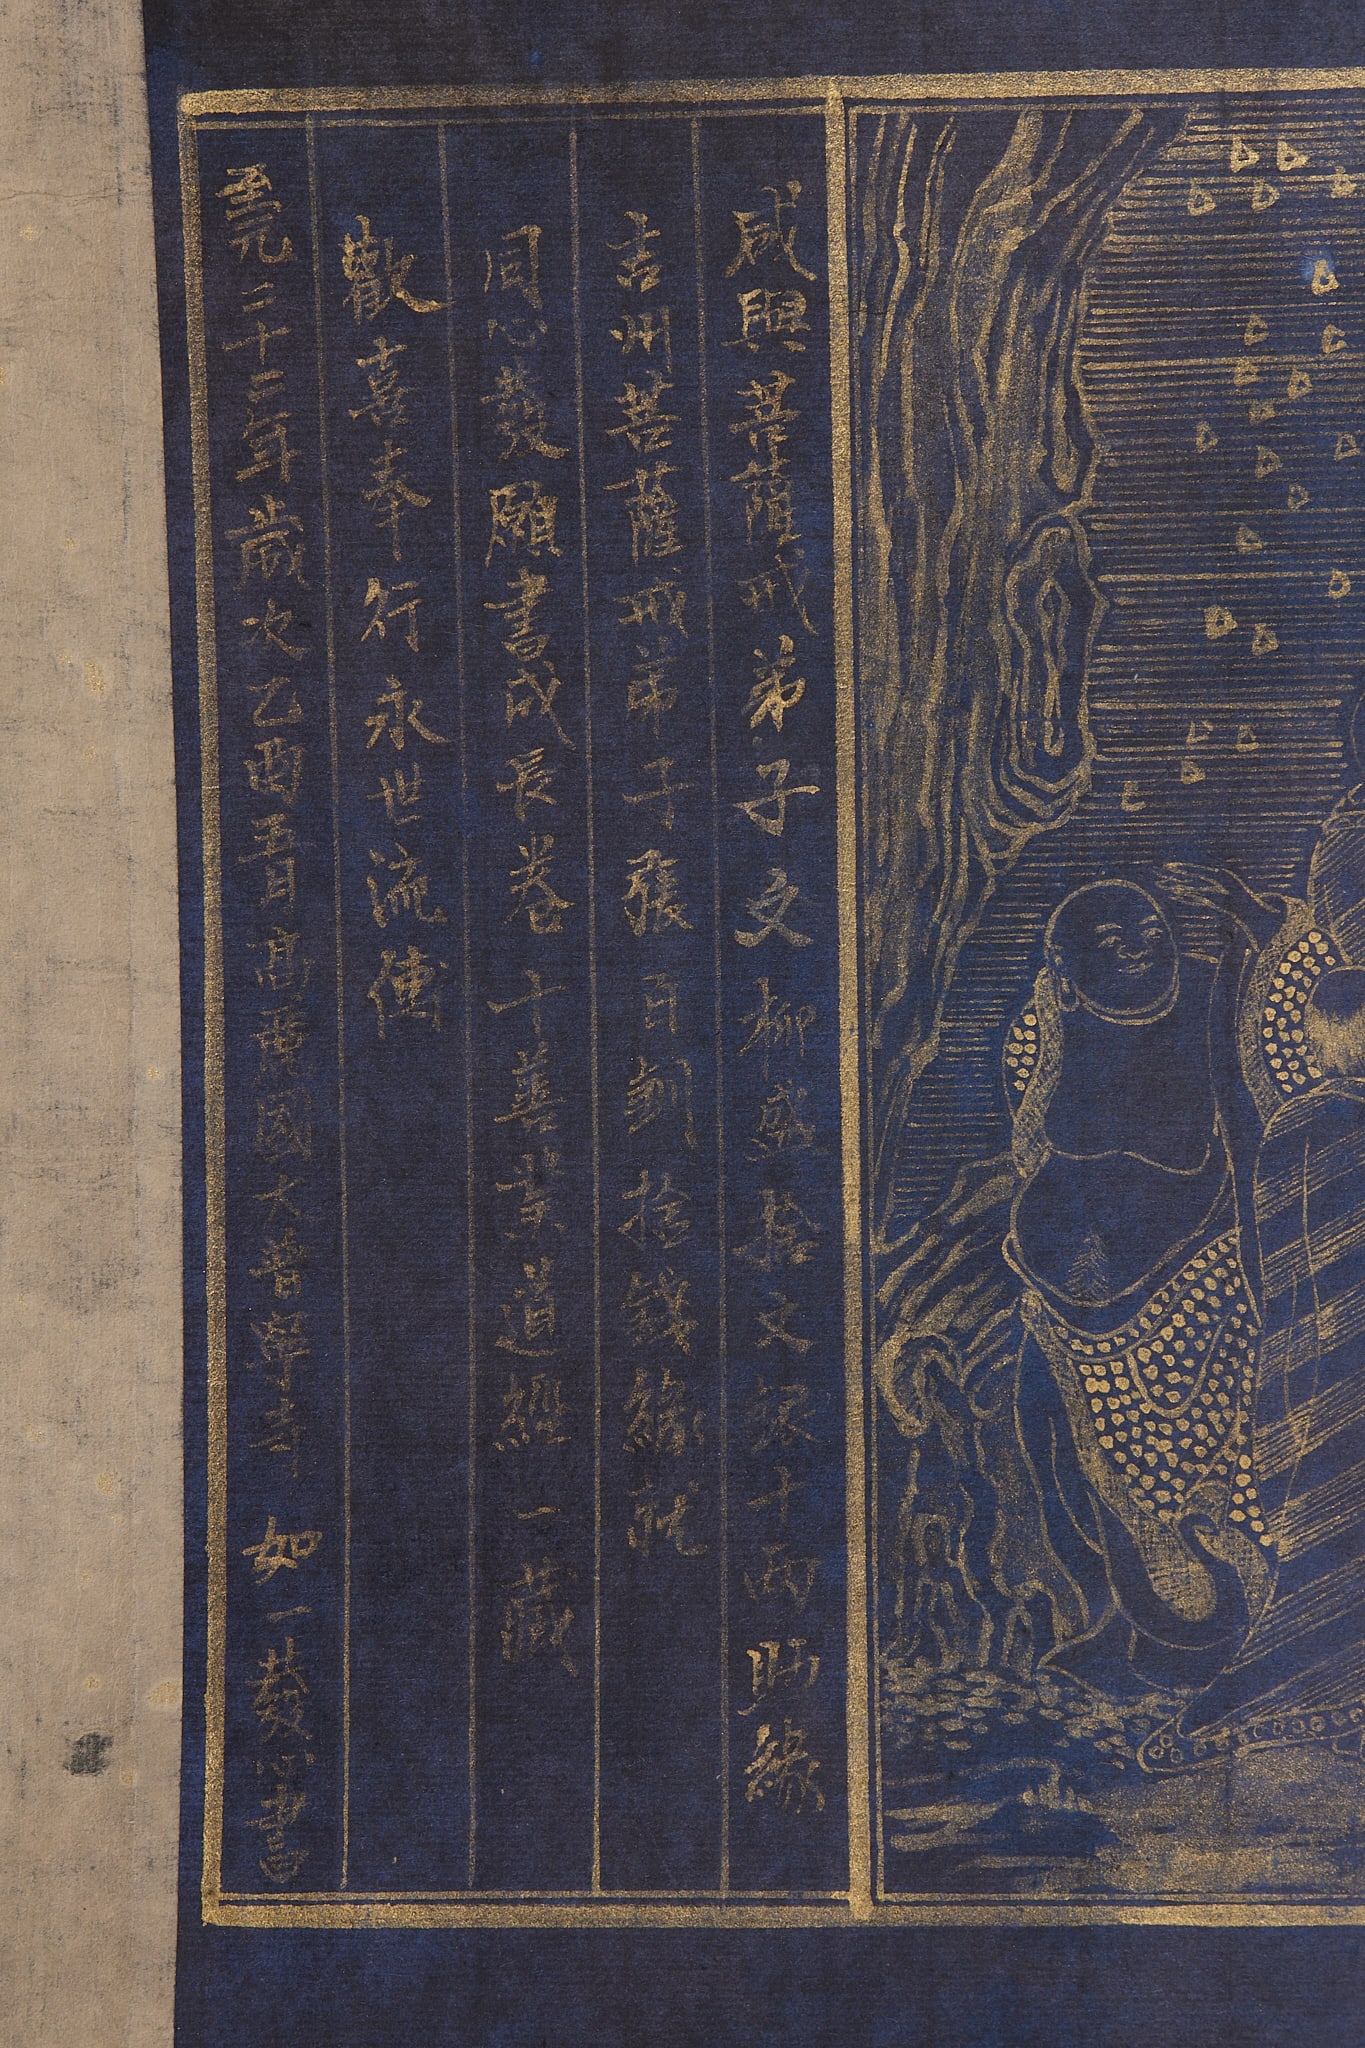 咸興菩薩戒弟子文柳盛捨文銀十兩助緣
吉州菩薩戒弟子張百釗捨錢緣就
同心發願書成長卷十善業道經一藏
歡喜奉行永世流傳
至元二十二年歲次乙酉五月高麗國大普寧寺如一發心書